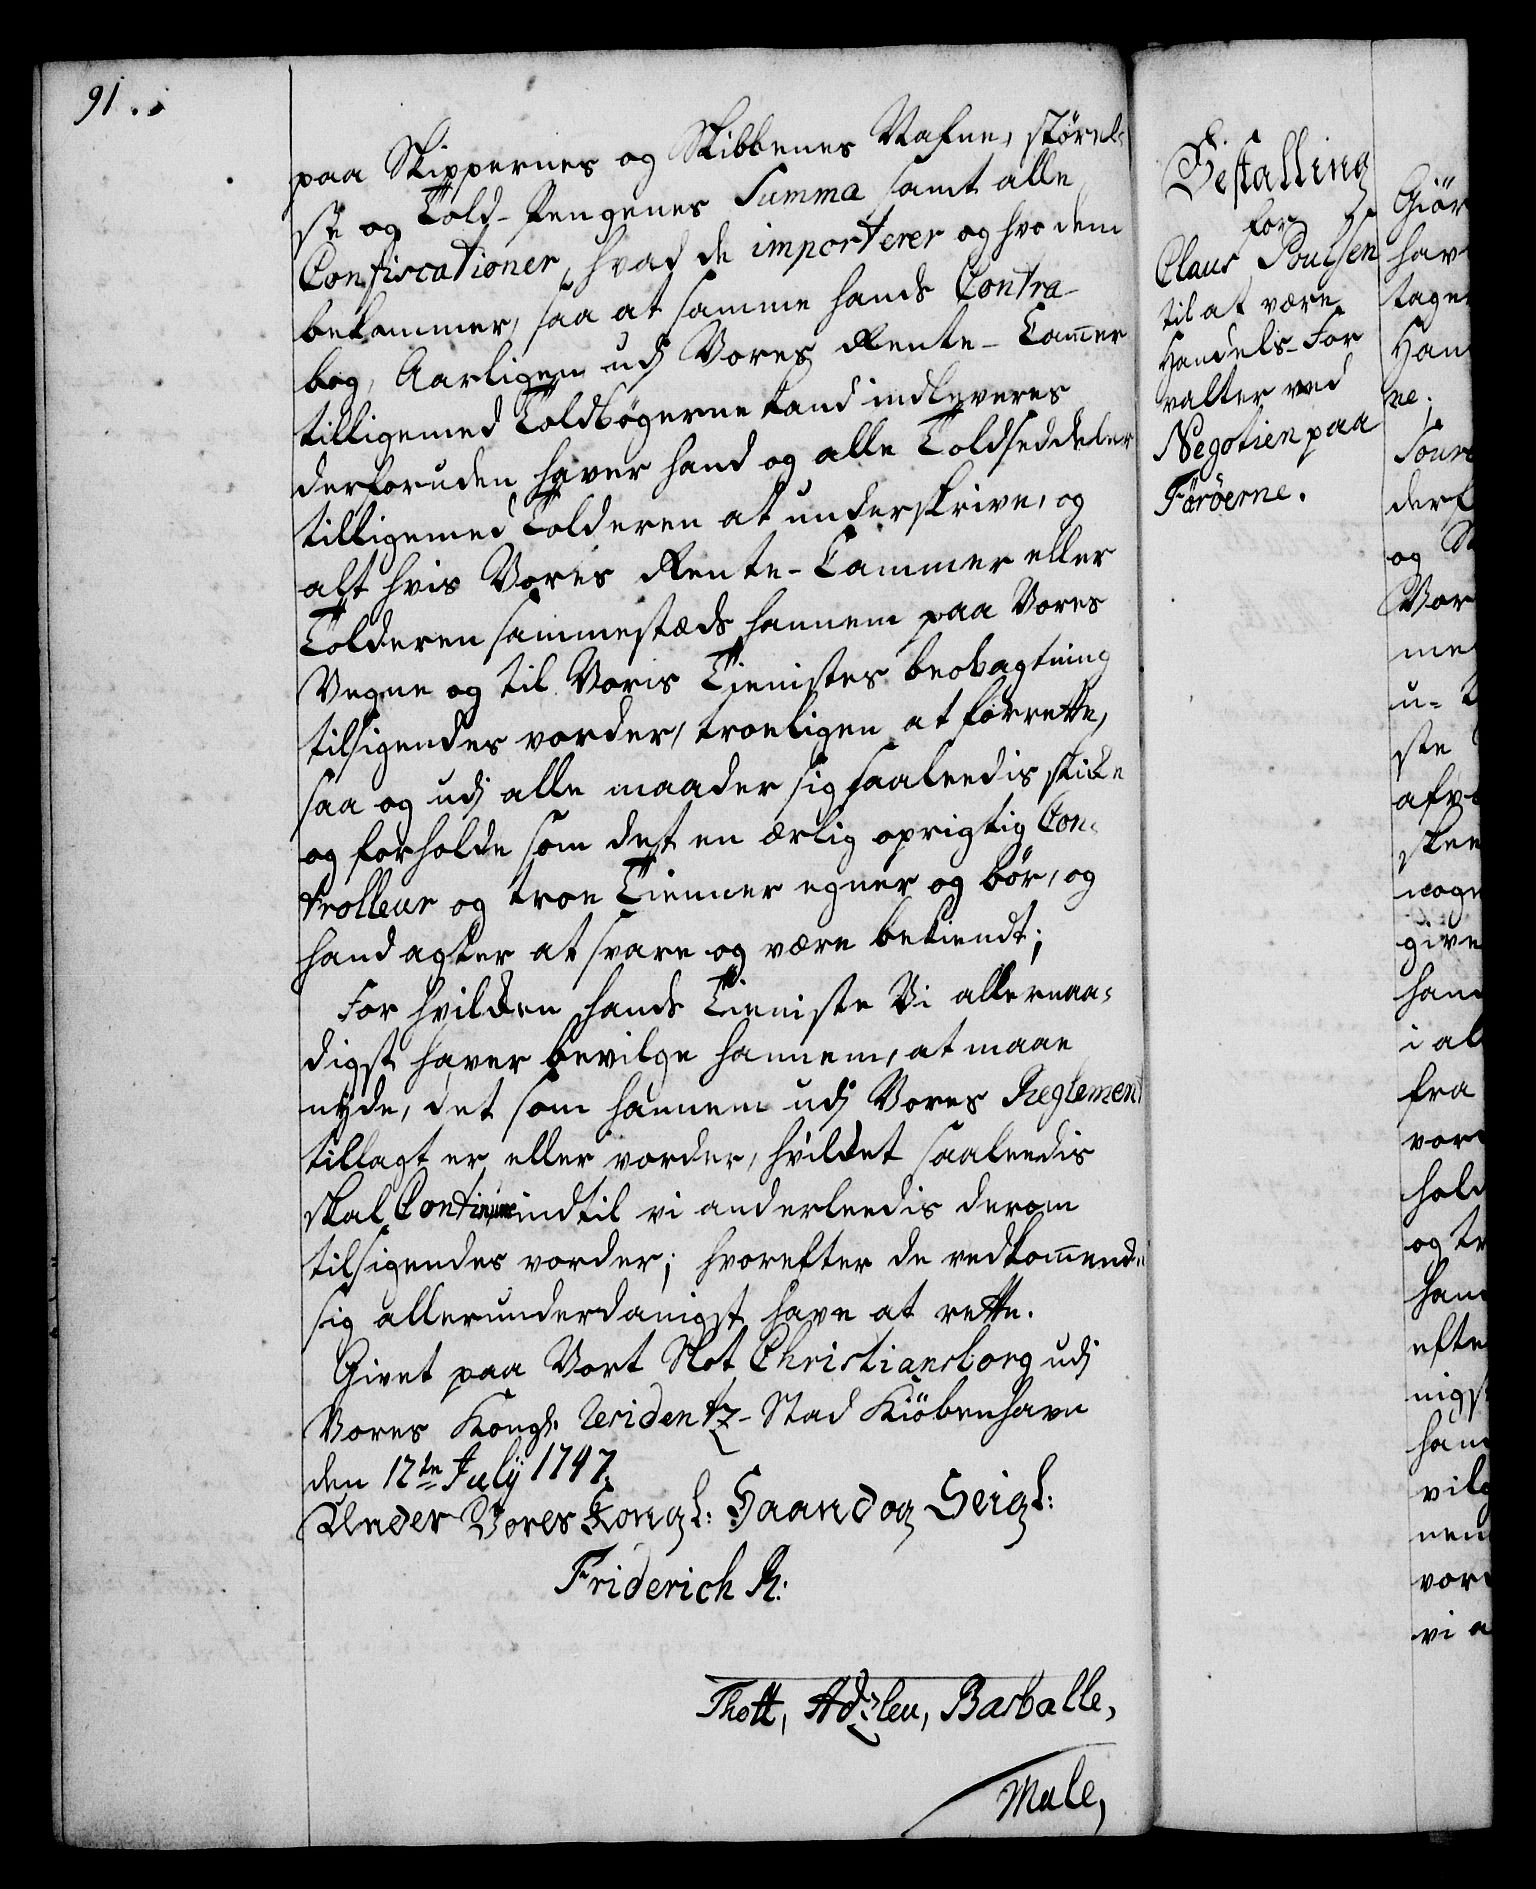 91.
paa Skippernes og Skibbenes Nafne, størel-
se og Told-Pengenes Summa samt alle
Confiscationer, hvad de importerer og hvo dem
bekommer, saa at samme hands Contra-
bog, Aarligen udj Vores Rente-Camer
tilligemed Toldbøgerne kand indleveres
derforuden haver hand og alle Toldseddeler
tilligemed Tolderen at underskrive, og
alt hvis Vores Rente-Cammer eller
Tolderen sammestæds hannem paa Vores
Vegne og til Voris Tienistes beobagtning
tilsigendes vorder, troeligen at forrette,
saa og udj alle maader sig saaleedis skikke
og forholde som det en ærlig oprigtig Con-
trolleur og troe Tienner egner og bør, og
hand agter at svare og være bekiendt;
For hvilken hands Tieniste Vi allernaa-
digst haver bevilge hannem, at maae
nyde, det som hannem udj Vores Reglement
tillagt er eller vorder, hvilket saaleedis
skal Continuere indtil vi anderleedis derom
tilsigendes vorder; hvorefter de vedkommend-
sig allerunderdanigst have at rette.
Givet paa Vort Slot Christiansborg udj
Vores Kongl. Residentz-Stad Kiøbenhavn
den 17de July 1747.
Under Vores Kongl: Haand og Seigl:
Friderich R:
Thott, Adzleu, Barballe,
Mule,
Bestalling
for
Claus Poulsen
til at være
Handels-For
valter ved
Negotien paa
Færöerne.
Giør
hav
tage
Han
ne.
derf
og
Vor
me
ste
afv
skee
noge
give
han
i al
fra
vor
hold
og tr
han
efte
nigs
han
vilg
nem
vor
vi a